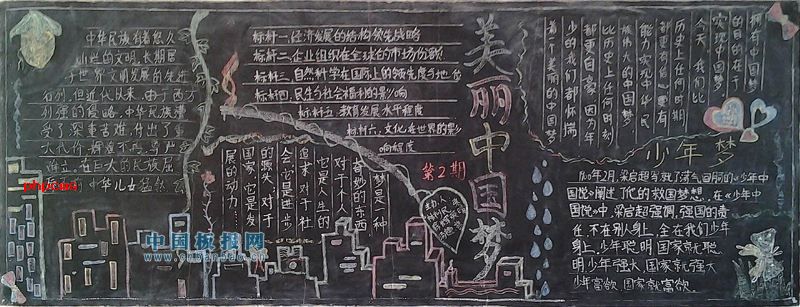 中华民族有着悠久
灿烂的文明,长期居
于世界文明发展的先进
行列,但近代以来,由于西方
列强的侵略,中华民族遭
受了深重苦难,付出了重
大代价
中华儿女
标杆一:经济发展的结构领先战略
标杆二:企业组织在全球的市场份额
标杆三:自然科学在国际上的领先度与地位
标杆四:民生与社会福利的影响
标杆五:教育发展水平程度
标杆六:文化在世界的影
响程度
美丽中国梦
第2期
梦是一种
奇妙的东西
对于个人
它是人生的
追求,对于社
会,它是进步
的源头,对于
国家,它是发
展的动力……
拥有中国梦
的目的在于
实现中国梦
今天,我们比
历史上任何时期
都更有信心,更有
能力实现中华民
族伟大的中国梦
比历史上任何时刻
都更自豪,因为年
少的我们都怀揣
着个美丽的中国梦
少年梦
1900年2月,梁启超
《少年中
国说》阐述了他的救国梦想,在《少年中
国说》中,梁启超强调,强国的责
任,不在别人身上,全在我们少年
身上,少年聪明国家就聪
明少年强大国家就强大
少年富欲国家就富欲
中国板报网